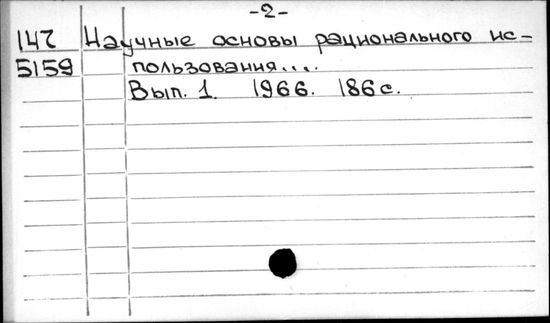 -2-
147 Научные основы рационального ис-
5159 пользования....
Вып. 1 1966. 186 с.